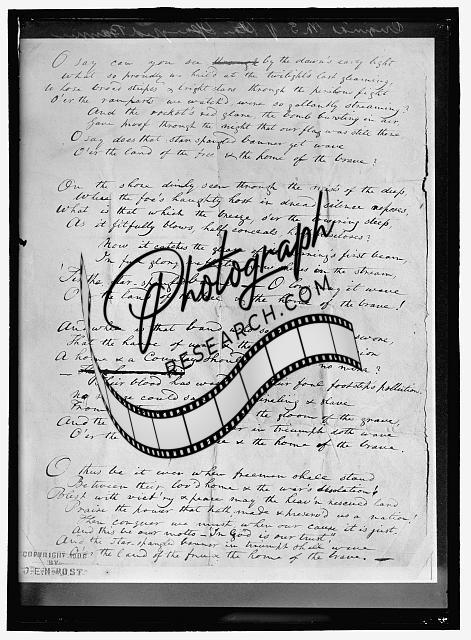 Original M S of Star Spangled Banner
O say can you see through by the dawn's early light
What so proudly we hail'd at the twilight's last gleaming,
Whose broad stripes & bright stars through the perilous fight
O'er the ramparts we watch'd, were so gallantly streaming?
And the rocket's red glare, the bomb bursting in air,
Gave proof through the night that our flag was still there
O say does that star spangled banner yet wave
O'er the land of the free & the home of the brave?
On the shore dimly seen through the mists of the deep,
Where the foe's haughty host in dread silence reposes,
What is that which the breeze, o'er the towering steep,
As it fitfully blows, half conceals, half discloses?
Now it catches the gleam morning's first beam,
In full glory on the stream,
'Tis the star it wave
O'er the land the home of the brave!
And where is that band who so swore,
That the havoc of war
A home & a Country should no more?
Their blood has foul footstep's pollution.
No could hireling & slave
From the gloom of the grave,
And the in triumph doth wave
O'er the & the home of the brave.
O thus be it ever when freemen shall stand
Between their lov'd home & the war's desolation!
Blest with vict'ry & peace may the heav'n rescued land
Praise the power that hath made & preserv'd us a nation!
Then conquer we must, when our cause it is just,
And this be our motto - "In God is our trust"
And the star-spangled banner in triumph shall wave
O'er the land of the free & the home of the brave.
COPYRIGHT
BY
Photograph
RESEARCH.COM